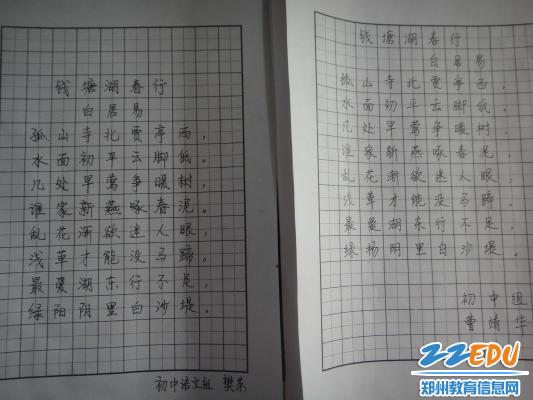 钱塘湖春行
白居易
孤山寺北贾亭西，
水面初平云脚低。
几处早莺争暖树，
谁家新燕啄春泥。
乱花渐欲迷人眼，
浅草才能没马蹄。
最爱湖东行不足，
绿阳阴里白沙堤。
初中语文组 樊东
钱塘湖春行
白居易
孤山寺北贾亭西，
水面初平云脚低。
几处早莺争暖树，
谁家新燕啄春泥
乱花渐欲迷人眼
浅草才能没马蹄
最爱湖东行不足，
绿杨阴里白沙堤。
初中组
曹靖华
ZZEDU
郑州教育信息网